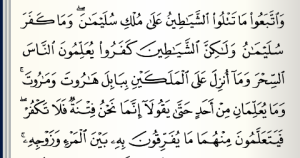 وَٱتَّبَعُوا۟ مَا تَتْلُوا۟ ٱلشَّيَـٰطِينُ عَلَىٰ مُلْكِ سُلَيْمَـٰنَ ۖ وَمَا كَفَرَ
سُلَيْمَـٰنُ وَلَـٰكِنَّ ٱلشَّيَـٰطِينَ كَفَرُوا۟ يُعَلِّمُونَ ٱلنَّاسَ
ٱلسِّحْرَ وَمَآ أُنزِلَ عَلَى ٱلْمَلَكَيْنِ بِبَابِلَ هَـٰرُوتَ وَمَـٰرُوتَ ۚ
وَمَا يُعَلِّمَانِ مِنْ أَحَدٍ حَتَّىٰ يَقُولَآ إِنَّمَا نَحْنُ فِتْنَةٌ فَلَا تَكْفُرْ ۖ
فَيَتَعَلَّمُونَ مِنْهُمَا مَا يُفَرِّقُونَ بِهِۦ بَيْنَ ٱلْمَرْءِ وَزَوْجِهِۦ ۚ